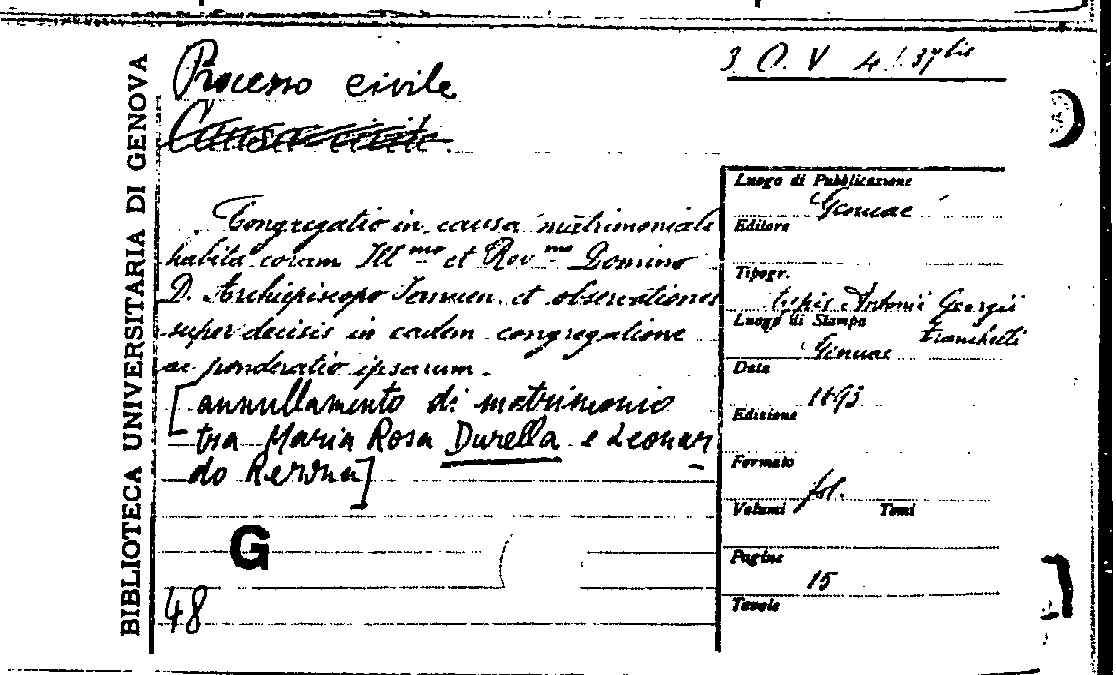 BIBLIOTECA UNIVERSITARIA DI GENOVA
3 O. V 4
Processo civile
Causa civile
Congregatio in causa matrimoniale
habita coram Ill.mo et Rev.mo Domino
D. Archiepiscopo Januen. et observationes
super decisis in eadem congregatione
ac ponderatio ipsarum.
[annullamento di matrimonio
tra Maria Rosa Durella e Leonar
do
G
48
Luogo di Pubblicazione
Genuae
Editore
Tipogr.
typis Antonii Georgii
Franchelli
Luogo di Stampa
Genuae
Data
Edizione
Formato
fol.
Volumi Tomi
Pagine
15
Tavole